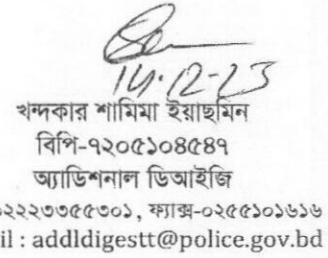 14-12-23
খন্দকার শামিমা ইয়াছমিন
বিপি-৭২০৫১০৪৫৪৭
অ্যাডিশনাল ডিআইজি
০২২২৩৩৫৫৩০১, ফ্যাক্স-০২৫৫১০১৬১৬
il : addldigestt@police.gov.bd